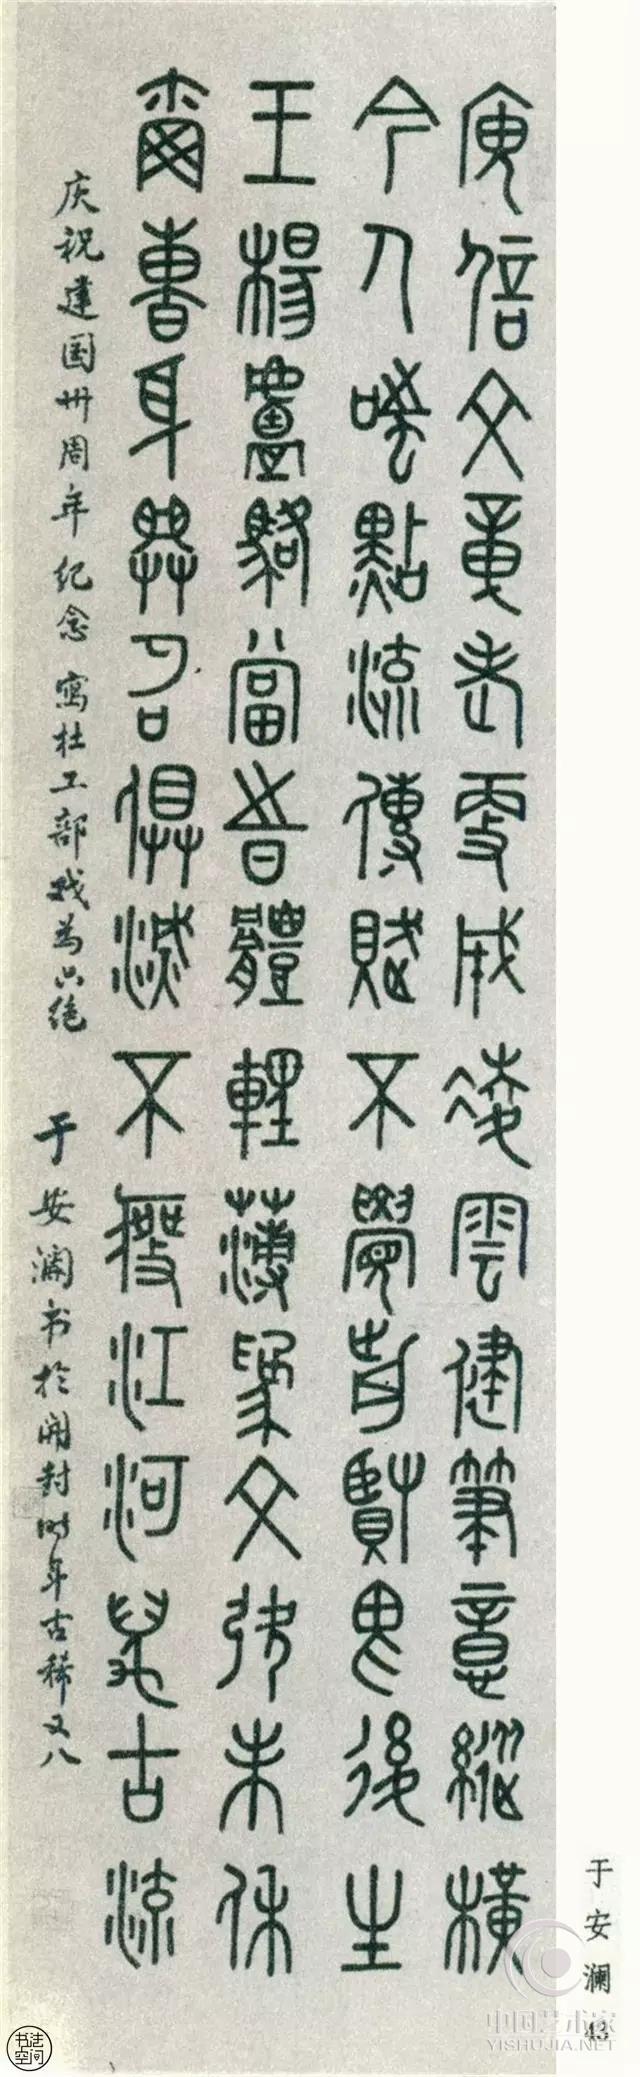 庾信文章老更成凌雲健筆意縱橫
今人嗤點流傳賦不覺前賢畏後生
王楊盧駱當時體輕薄為文哂未休
爾曹身與名俱滅不廢江河萬古流
庆祝建国卅周年纪念 寫杜工部戏为六绝 于安澜书於開封时年古稀又八
于安澜
43
中国艺术家
YISHUJIA.NET
书法
空间